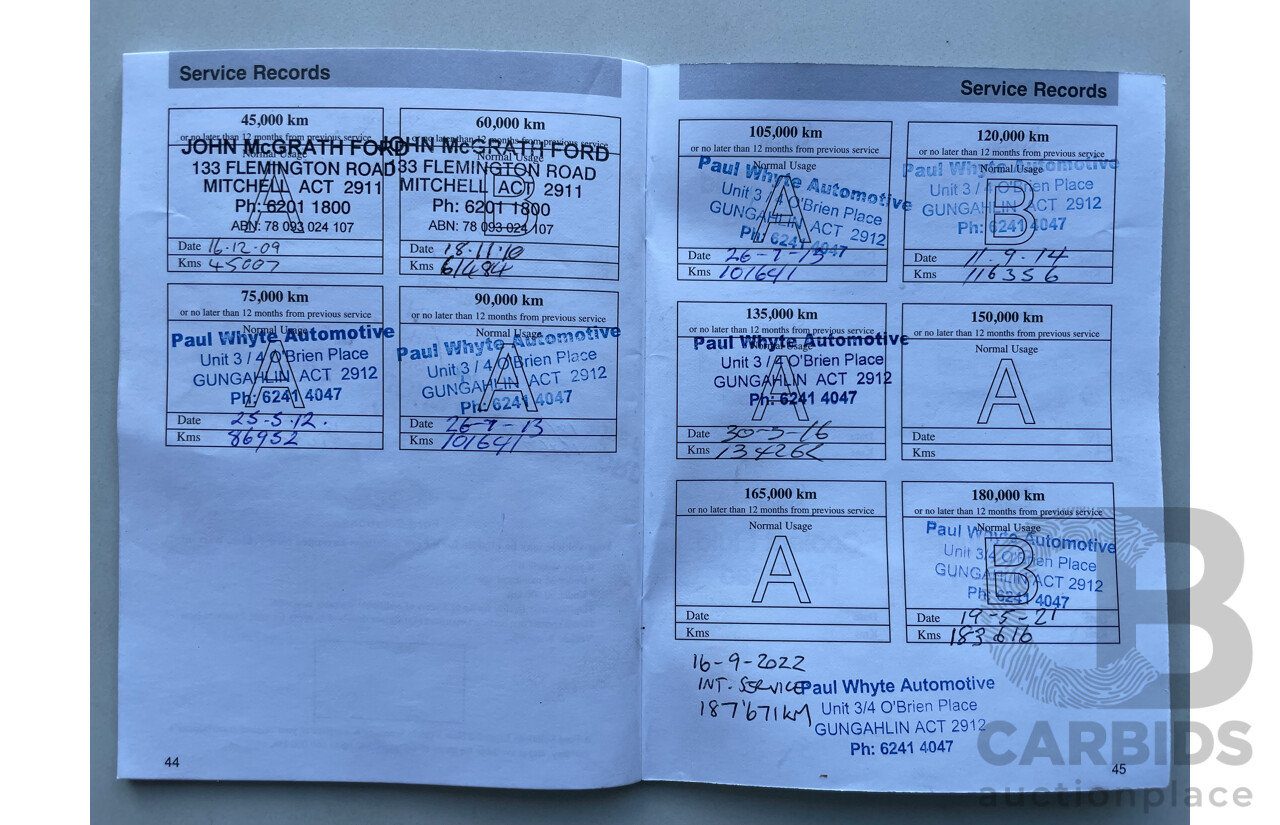 Service Records
45,000 km
or no later than 12 months from previous service
Normal Usage
JOHN McGRATH FORD
133 FLEMINGTON ROAD
MITCHELL ACT 2911
Ph: 6201 1800
ABN: 78 093 024 107
A
Date 16.12.09
Kms 45007
60,000 km
or no later than 12 months from previous service
Normal Usage
JOHN McGRATH FORD
133 FLEMINGTON ROAD
MITCHELL ACT 2911
Ph: 6201 1800
ABN: 78 093 024 107
B
Date 18.11.10
Kms 61484
75,000 km
or no later than 12 months from previous service
Normal Usage
Paul Whyte Automotive
Unit 3 / 4 O'Brien Place
GUNGAHLIN ACT 2912
Ph: 6241 4047
A
Date 25-5-12.
Kms 86952
90,000 km
or no later than 12 months from previous service
Normal Usage
Paul Whyte Automotive
Unit 3 / 4 O'Brien Place
GUNGAHLIN ACT 2912
Ph: 6241 4047
A
Date 26-7-13
Kms 101641
44
Service Records
105,000 km
or no later than 12 months from previous service
Normal Usage
Paul Whyte Automotive
Unit 3 / 4 O'Brien Place
GUNGAHLIN ACT 2912
Ph: 6241 4047
A
Date 26-7-13
Kms 101641
120,000 km
or no later than 12 months from previous service
Normal Usage
Paul Whyte Automotive
Unit 3 / 4 O'Brien Place
GUNGAHLIN ACT 2912
Ph: 6241 4047
B
Date 11.9.14
Kms 116356
135,000 km
or no later than 12 months from previous service
Normal Usage
Paul Whyte Automotive
Unit 3 / 4 O'Brien Place
GUNGAHLIN ACT 2912
Ph: 6241 4047
A
Date 30-5-16
Kms
150,000 km
or no later than 12 months from previous service
Normal Usage
A
Date
Kms
165,000 km
or no later than 12 months from previous service
Normal Usage
A
Date
Kms
180,000 km
or no later than 12 months from previous service
Normal Usage
Paul Whyte Automotive
Unit 3/4 O'Brien Place
GUNGAHLIN ACT 2912
Ph: 6241 4047
B
Date 19-5-21
Kms 183616
16-9-2022
INT. SERVICE
187'671KM
Paul Whyte Automotive
Unit 3/4 O'Brien Place
GUNGAHLIN ACT 2912
Ph: 6241 4047
45
CARBIDS
auctionplace